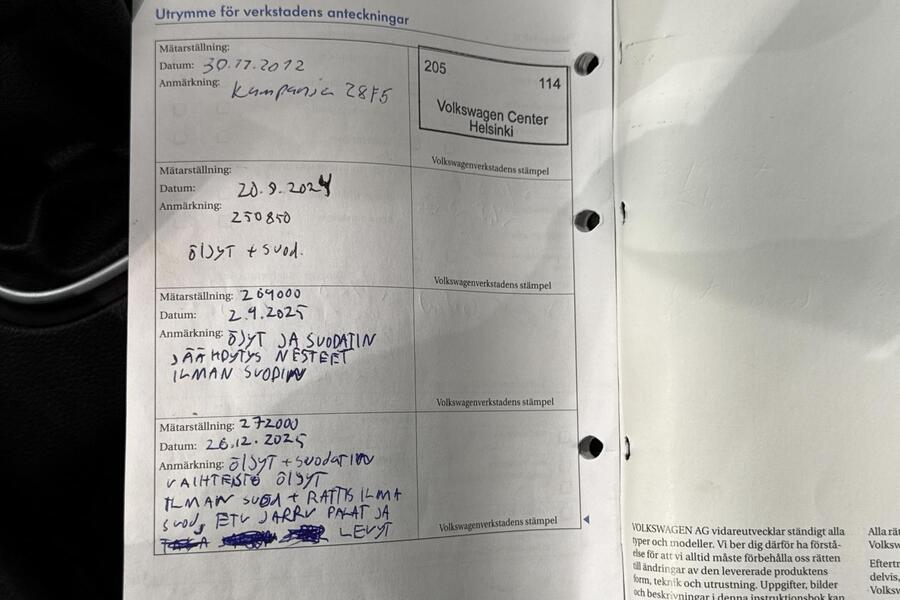 Utrymme för verkstadens anteckningar
Mätarställning:
Datum: 30.11.2012
Anmärkning: Kampanja 28F5
205
114
Volkswagen Center
Helsinki
Volkswagenverkstadens stämpel
Mätarställning:
Datum: 20.9.2024
Anmärkning:
250850
öljyt + suod.
Volkswagenverkstadens stämpel
Mätarställning: 269000
Datum: 2.9.2025
Anmärkning: ÖJYT JA SUODATIN
JÄÄHDYTYS NESTEET
ILMAN SUODIN
Volkswagenverkstadens stämpel
Mätarställning: 272000
Datum: 26.12.2025
Anmärkning: ÖlJYT + SUODATIN
VAIHTEISTO ÖlJYT
ILMAN SUOD + RATTIS ILMA
SUOD, ETU JARRU PALAT JA
LEVYT
Volkswagenverkstadens stämpel
VOLKSWAGEN AG vidareutvecklar ständigt alla
typer och modeller. Vi ber dig därför ha förstå-
else för att vi alltid måste förbehålla oss rätten
till ändringar av den levererade produktens
form, teknik och utrustning. Uppgifter, bilder
och beskrivningar i denna instruktionsbok kan
Alla rät
Volksw
Eftertr
delvis,
Volksw